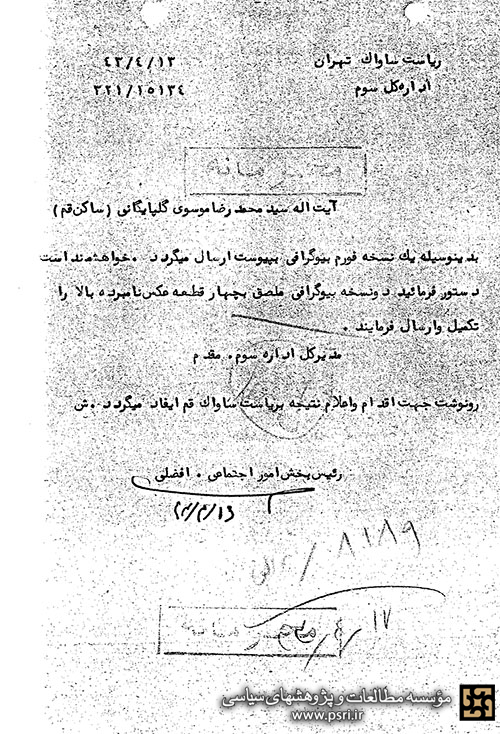 ریاست ساواك تهران ٤٣/٤/١٣
اداره‌كل سوم ٣٢١/١٥١٣٤
محرمانه
آیت اله سید محمد رضا موسوی گلپایگانی (ساكن قم)
بدینوسیله یك نسخه فورم بیوگرافی بپیوست ارسال میگردد . خواهشمند است
دستور فرمائید دونسخه بیوگرافی ملصق بچهار قطعه عكس نامبرده بالا را
تكمیل وارسال فرمایند .
مدیركل اداره سوم . مقدم
رونوشت جهت اقدام واعلام نتیجه بریاست ساواك قم ایفاد میگردد . ش
رئیس بخش امور اجتماعی . افضلی
٨١٨٩
محرمانه
مؤسسه مطالعات و پژوهشهای سیاسی
www.psri.ir